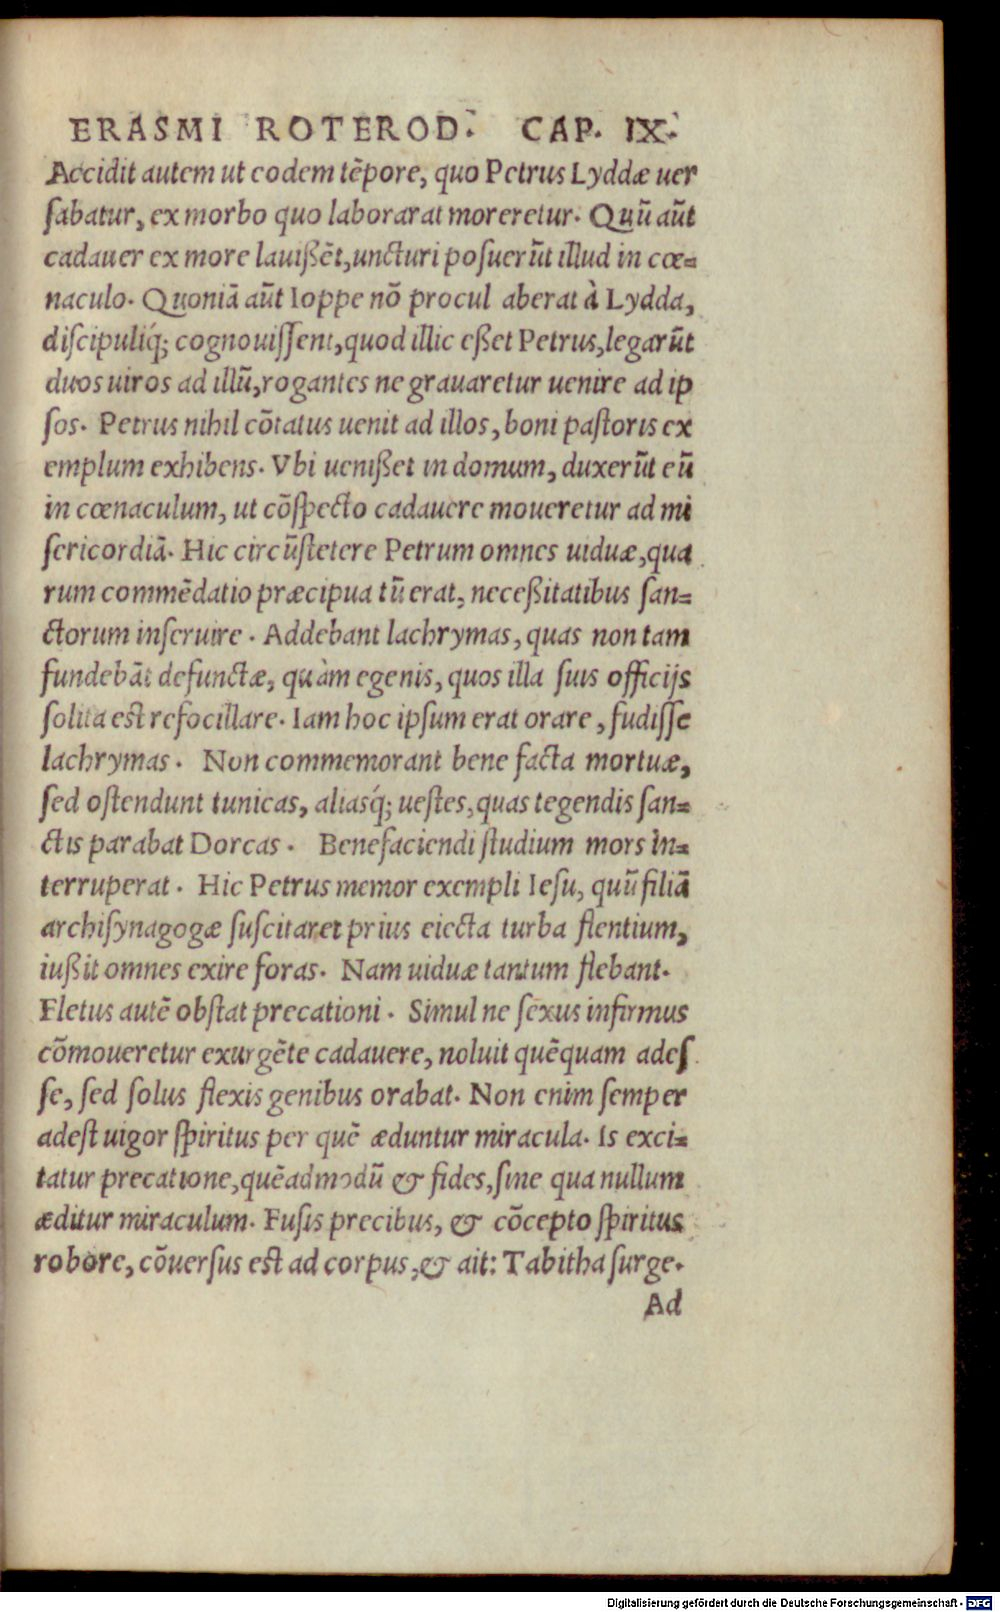 ERASMI ROTEROD. CAP. IX.
Accidit autem ut eodem tẽpore, quo Petrus Lyddæ uer
ſabatur, ex morbo quo laborarat moreretur. Quũ aũt
cadauer ex more lauißẽt, uncturi poſuerũt illud in cœ-
naculo. Quoniã aũt Ioppe nõ procul aberat à Lydda,
diſcipuliq́; cognouiſſent, quod illic eßet Petrus, legarũt
duos uiros ad illũ, rogantes ne grauaretur uenire ad ip
ſos. Petrus nihil cõtatus uenit ad illos, boni paſtoris ex
emplum exhibens. Vbi uenißet in domum, duxerũt eũ
in cœnaculum, ut cõſpecto cadauere moueretur ad mi
ſericordiã. Hic circũſtetere Petrum omnes uiduæ, qua
rum commẽdatio præcipua tũ erat, neceßitatibus ſan-
ctorum inſeruire. Addebant lachrymas, quas non tam
fundebãt defunctæ, quàm egenis, quos illa ſuis officijs
ſolita eſt refocillare. Iam hoc ipſum erat orare, fudiſſe
lachrymas. Non commemorant bene facta mortuæ,
ſed oſtendunt tunicas, aliasq́; ueſtes, quas tegendis ſan-
ctis parabat Dorcas. Benefaciendi ſtudium mors in-
terruperat. Hic Petrus memor exempli Ieſu, quũ filiã
archiſynagogæ ſuſcitaret prius eiecta turba flentium,
iußit omnes exire foras. Nam uiduæ tantum flebant.
Fletus autẽ obſtat precationi. Simul ne ſexus infirmus
cõmoueretur exurgẽte cadauere, noluit quẽquam adeſ
ſe, ſed ſolus flexis genibus orabat. Non enim ſemper
adeſt uigor ſpiritus per quẽ æduntur miracula. Is exci-
tatur precatione, quẽadmodũ & fides, ſine qua nullum
æditur miraculum. Fuſis precibus, & cõcepto ſpiritus
robore, cõuerſus eſt ad corpus, & ait: Tabitha ſurge.
Ad
Digitalisierung gefördert durch die Deutsche Forschungsgemeinschaft - DFG